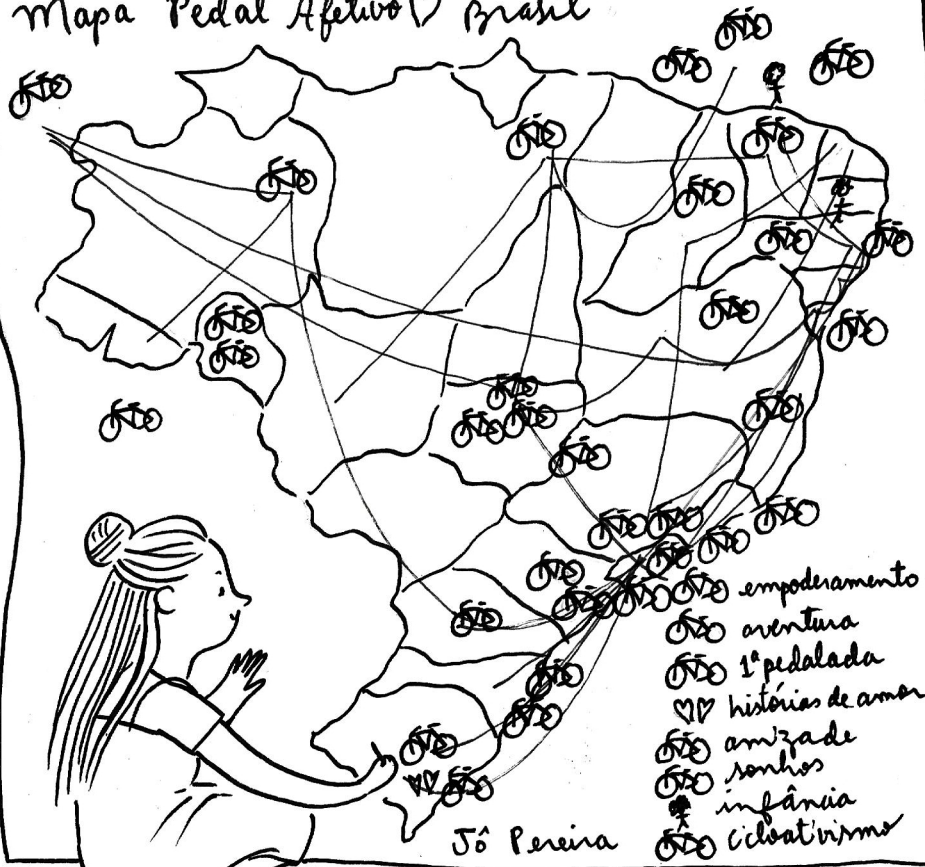 Mapa Pedal Afetivo♡ Brasil
empoderamento
aventura
1ª pedalada
histórias de amor
amizade
sonhos
infância
cicloativismo
Jô Pereira